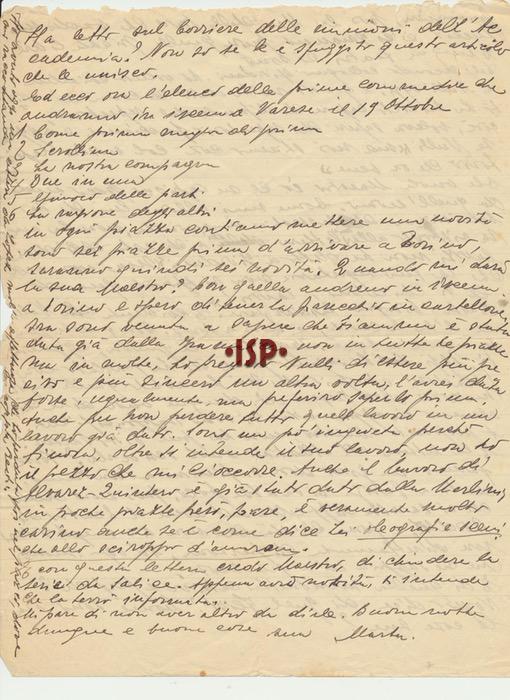 Ha letto sul Corriere delle riunioni dell'Ac
cademia? Non so se le è sfuggito questo articolo
che le unisco.
Ed ecco ora l'elenco delle prime commedie che
andranno in iscena a Varese il 19 Ottobre
1 Come prima meglio di prima
2 Scrollina
3 La nostra compagna
Due in una
Giuoco delle parti
La ragione degli altri
In ogni piazza contiamo mettere una novità
sono sei piazze prima d'arrivare a Torino,
saranno quindi sei novità. Quando mi darà
la sua Maestro? Con quella andremo in iscena
a Torino e spero di tenerla parecchio in cartellone
Ora sono venuta a sapere che è stata
data già dalla non in tutte le piazze
ma in molte. Lo Nulli di essere più pre
ciso e più sincero un'altra volta, l'avrei data
forse ugualmente, ma preferivo saperlo prima.
Anche per non perdere tutto quel lavoro in un
lavoro già dato. Sono un po' inquieta perchè
finora, oltre si intende il suo lavoro, non ho
il pezzo che mi ci occorre. Anche il lavoro di
Alvarez-Quintero è già stato dato dalla Merlini,
in poche piazze però, pare, è veramente molto
carino anche se è come dice Lei oleografia
che allo sciroppo d'amarena.
Con questa lettera credo Maestro, di chiudere la
serie da Salice. Appena avrò novità, s'intende
che la terrò informata.
Mi pare di non aver altro da dirle. Buona notte
dunque e buone cose sua Marta.
·ISP·